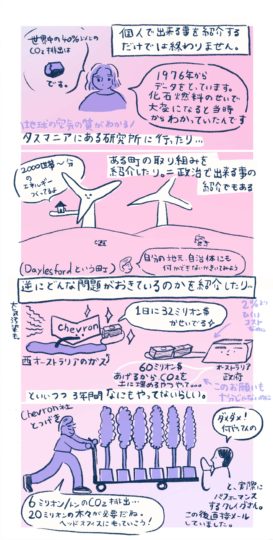 個人で出来る事を紹介する
だけでは終わりません。
世界中の40%以上の
CO2排出は
です。
1976年から
データをとっています。
化石燃料のせいで
大変になると当時
からわかっていたんです
地球の空気の質がわかる!
タスマニアにある研究所に行ったり…
2000世帯〜分
エネルギー
つくってるよ
ある町の取り組みを
紹介したり。=政治で出来る事の
紹介でもある
(Daylesfordという町)
自分の地元、自治体にも
何かできないかきいてみよう
逆にどんな問題がおきているのかを紹介したり〜
大気汚染も
chevron
西オーストラリアのガス
1日に32ミリオン$
かせいでるよ
2%くらい
コスト
なのに
60ミリオン$
あげるからCO2を
土に埋めるやつやって…
オーストラリア
政府
このお願いも
十分じゃないのに
といいつつ3年間なにもやってないらしい。
Chevron社に
とつげき
ダメダメ!
6ミリオントンのCO2排出…
20ミリオンの木々が必要だね。
ヘッドオフィスにもっていこう!
と、実際に
パフォーマンス
するクレイグさん。
この後直接メール
していました。